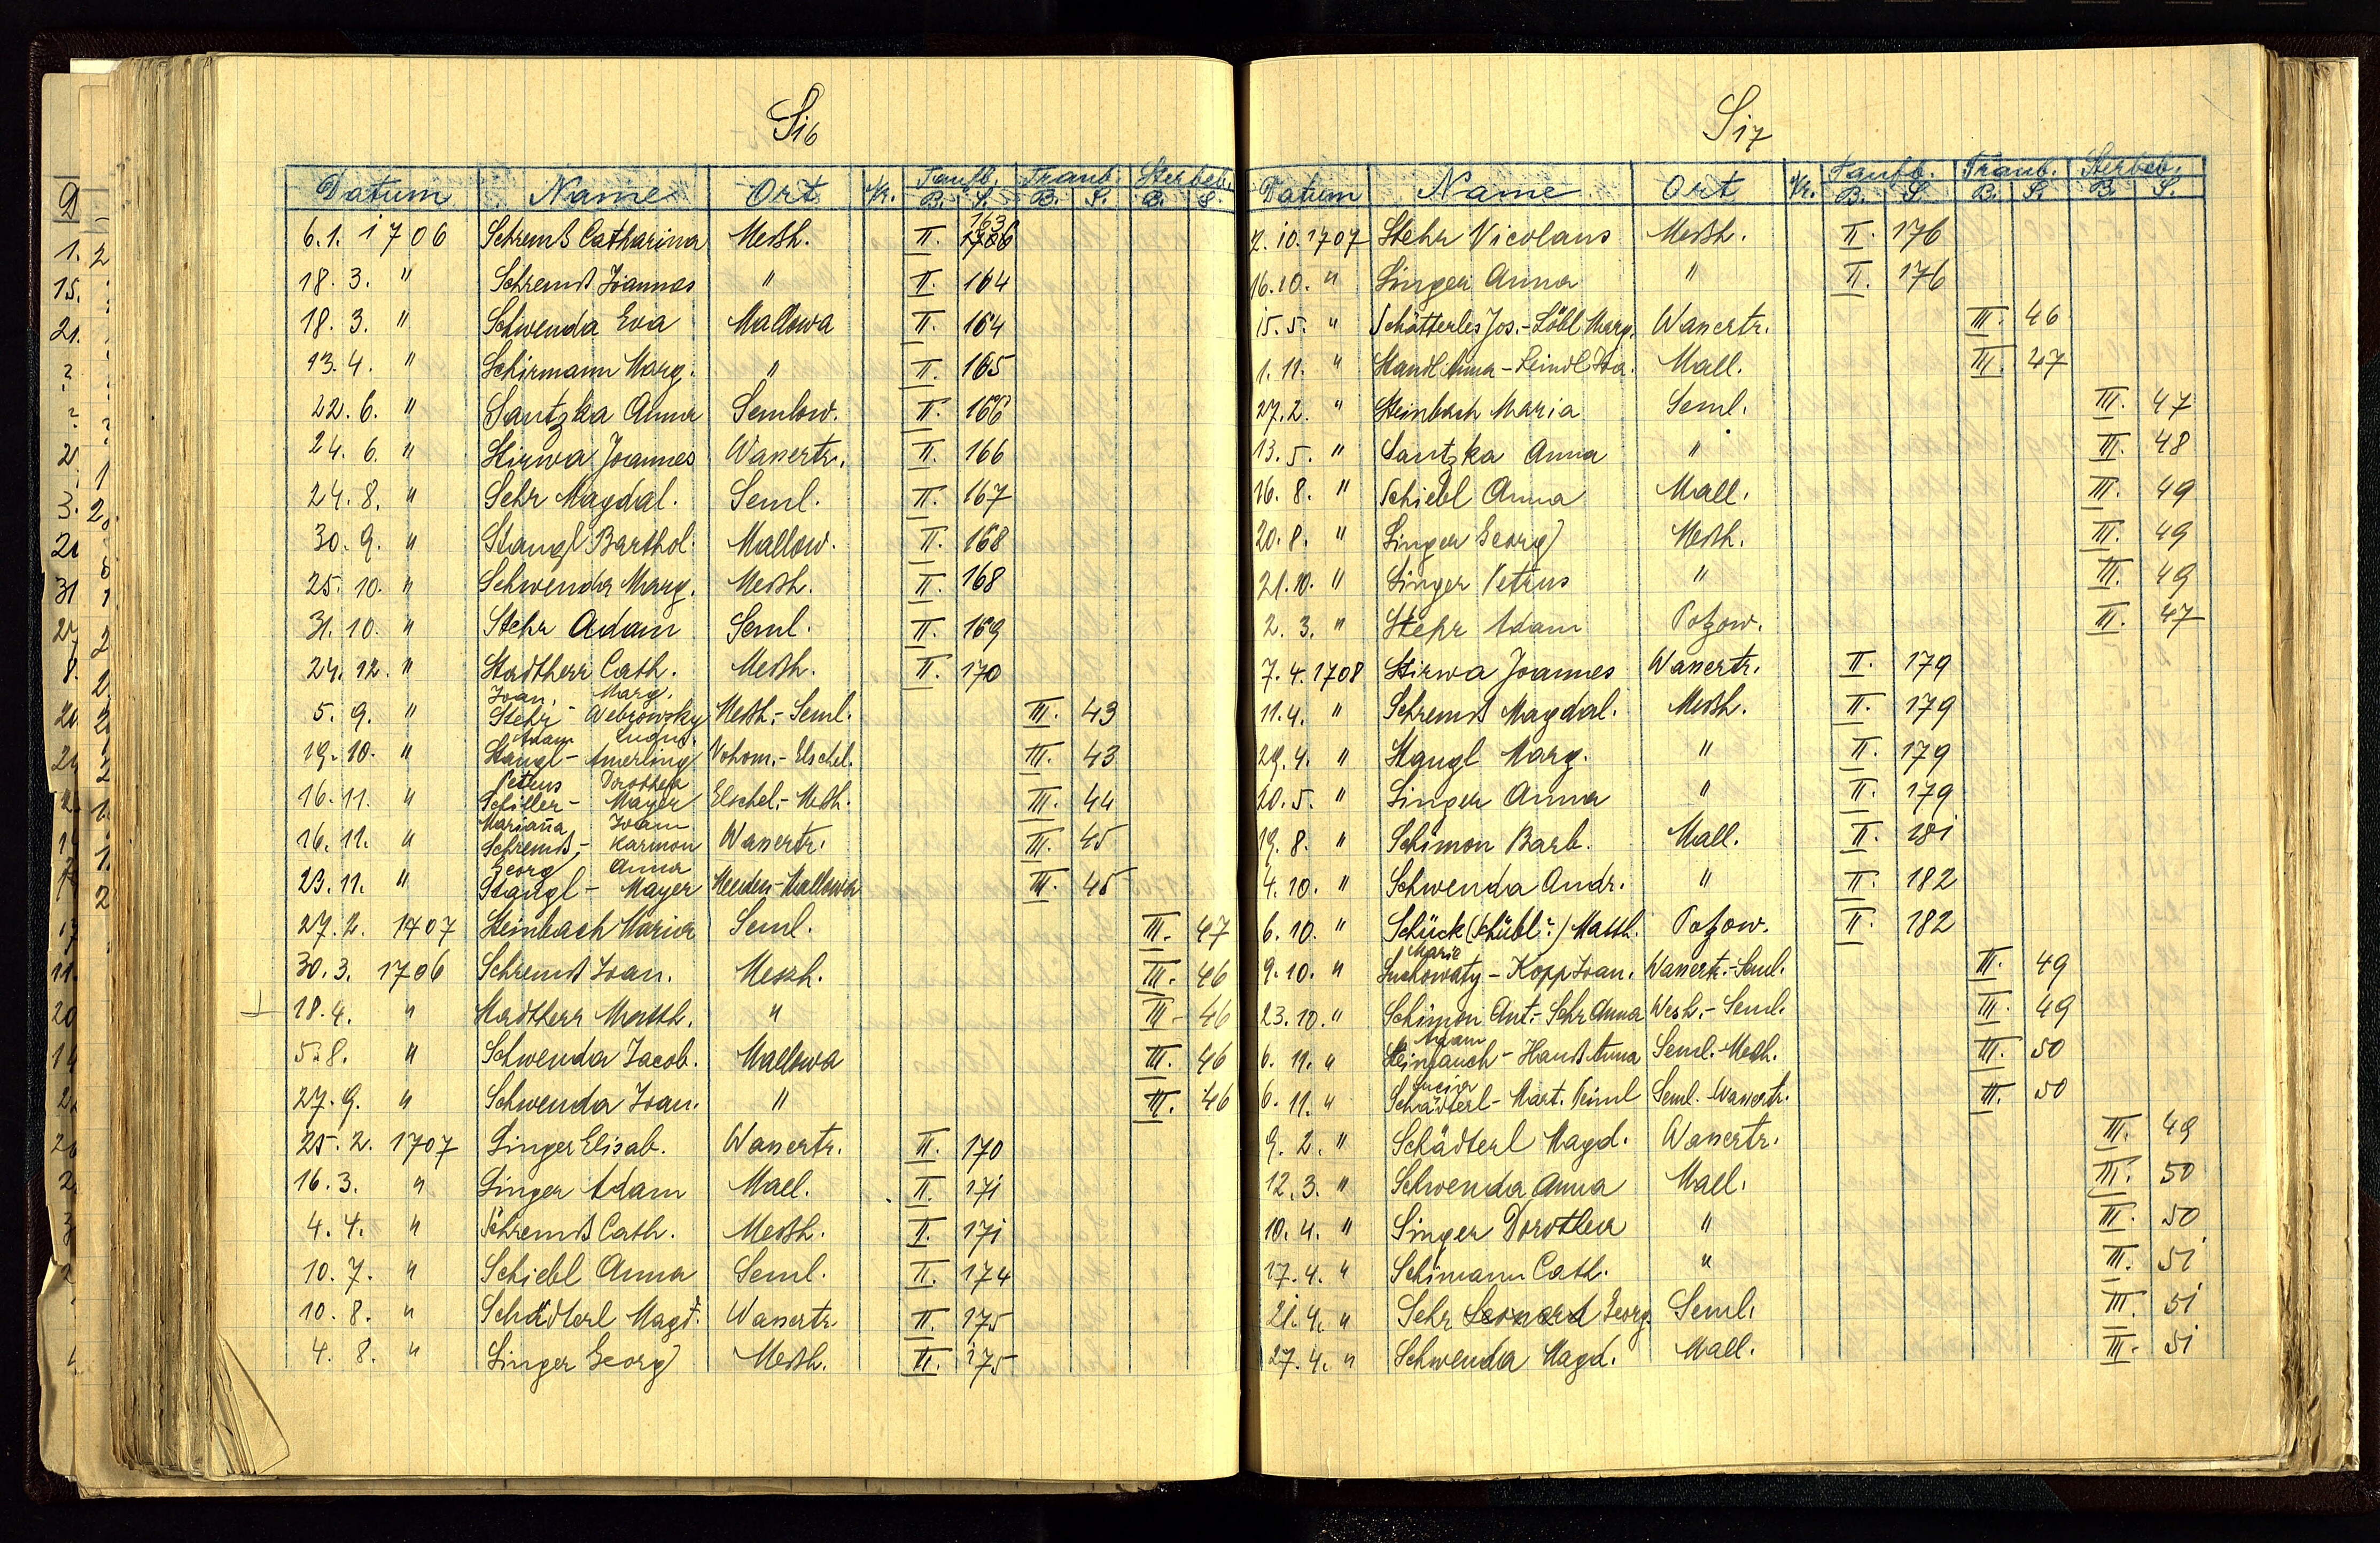 S16
Datum Name Ort Nr. Taufb. Traub. Sterbeb.
B. S. B. S. B. S.
6.1. 1706 Schremß Catharina Meßh. II. 163
18. 3. " Schremß Joannes " II. 164
18. 3. " Schwenda Eva Mallowa II. 164
13. 4. " Schirmann Marg. " II. 165
22. 6. " Santzka Anna Semlow. II. 166
24. 6. " Stirwa Joannes Wasertr. II. 166
24. 8. " Sehr Magdal. Seml. II. 167
30. 9. " Stangl Barthol. Mallow. II. 168
25. 10. " Schwenda Marg. Meßh. II. 168
31. 10. " Stehr Adam Seml. II. 169
24. 12. " Stadtherr Cath. Meßh. II. 170
Joan. Marg.
5. 9. " Stehr - Webrowsky Meßh.- Seml. III. 43
Adam
19. 10. " Stangl - Amerling Wohom.- Elschel. III. 43
Petrus Dorothea
16. 11. " Schiller - Mayer Elschel.- Meßh. III. 44
Mariana Joann
16. 11. " Schremß - Karmon Wasertr. III. 45
Georg Anna
23. 11. " Stangl - Mayer -Mallowa III. 45
27. 2. 1707 Steinbach Maria Seml. III. 47
30. 3. 1706 Schremß Joan. Meszh. III. 46
18. 4. " Stadtherr Matth. " III. 46
5. 8. " Schwenda Jacob. Mallowa III. 46
27. 9. " Schwenda Joan. " III. 46
25. 2. 1707 Singer Elisab. Wasertr. II. 170
16. 3. " Singer Adam Mall. II. 171
4. 4. " Schremß Cath. Meßh. II. 171
10. 7. " Schiebl Anna Seml. II. 174
10. 8. " Schädterl Magd. Wasertr. II. 175
4. 8. " Singer Georg Meßh. II. 175
S17
Datum Name Ort Nr. Taufb. Traub. Sterbeb.
B. S. B. S. B. S.
2. 10. 1707 Stehr Nicolaus Meßh. II. 176
16. 10. " Singer Anna " II. 176
15. 5. " Schätterles Jos. - Löbl Marg. Wasertr. III. 46
1. 11. " Standl Anna - Leindl Joa. Mall. III. 47
27. 2. " Steinbach Maria Seml. III. 47
13. 5. " Santzka Anna " III. 48
16. 8. " Schiebl Anna Mall. III. 49
20. 8. " Singer Georg Meßh. III. 49
21. 10. " Singer Petrus " III. 49
2. 3. " Stehr Adam Potzow. III. 47
7. 4. 1708 Stirwa Joannes Wasertr. II. 179
11. 4. " Schremß Magdal. Meßh. II. 179
29. 4. " Stangl Marg. " II. 179
20. 5. " Singer Anna " II. 179
19. 8. " Schimon Barb. Mall. II. 181
4. 10. " Schwenda Andr. " II. 182
6. 10. " Schück (Schübl?) Matth. Potzow. II. 182
Marie
9. 10. " Suchowaty - Kopp Joan. Wasertr.- Seml. III. 49
23. 10. " Schimon Ant. - Sehr Anna Wesh.- Seml. III. 49
Adam
6. 11. " - Hanß Anna Seml.- Meßh. III. 50
Lucia
6. 11. " Schädterl - Mart. Seml. Wasertr. III. 50
9. 2. " Schädterl Magd. Wasertr. III. 49
12. 3. " Schwenda Anna Mall. III. 50
10. 4. " Singer Dorothea " III. 50
17. 4. " Schimann Cath. " III. 51
21. 4. " Sehr Leonard Georg Seml. III. 51
27. 4. " Schwenda Magd. Mall. III. 51